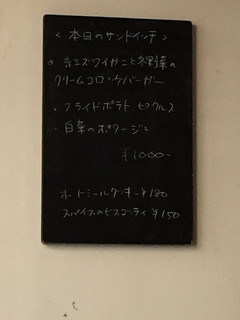 <本日のサンドイッチ>
紅ズワイガニと冬野菜の
クリームコロッケバーガー
・フライドポテト ピクルス
・白菜のポタージュ
¥1000-
オートミールクッキー ¥180
スパイスのビスコッティ ¥150